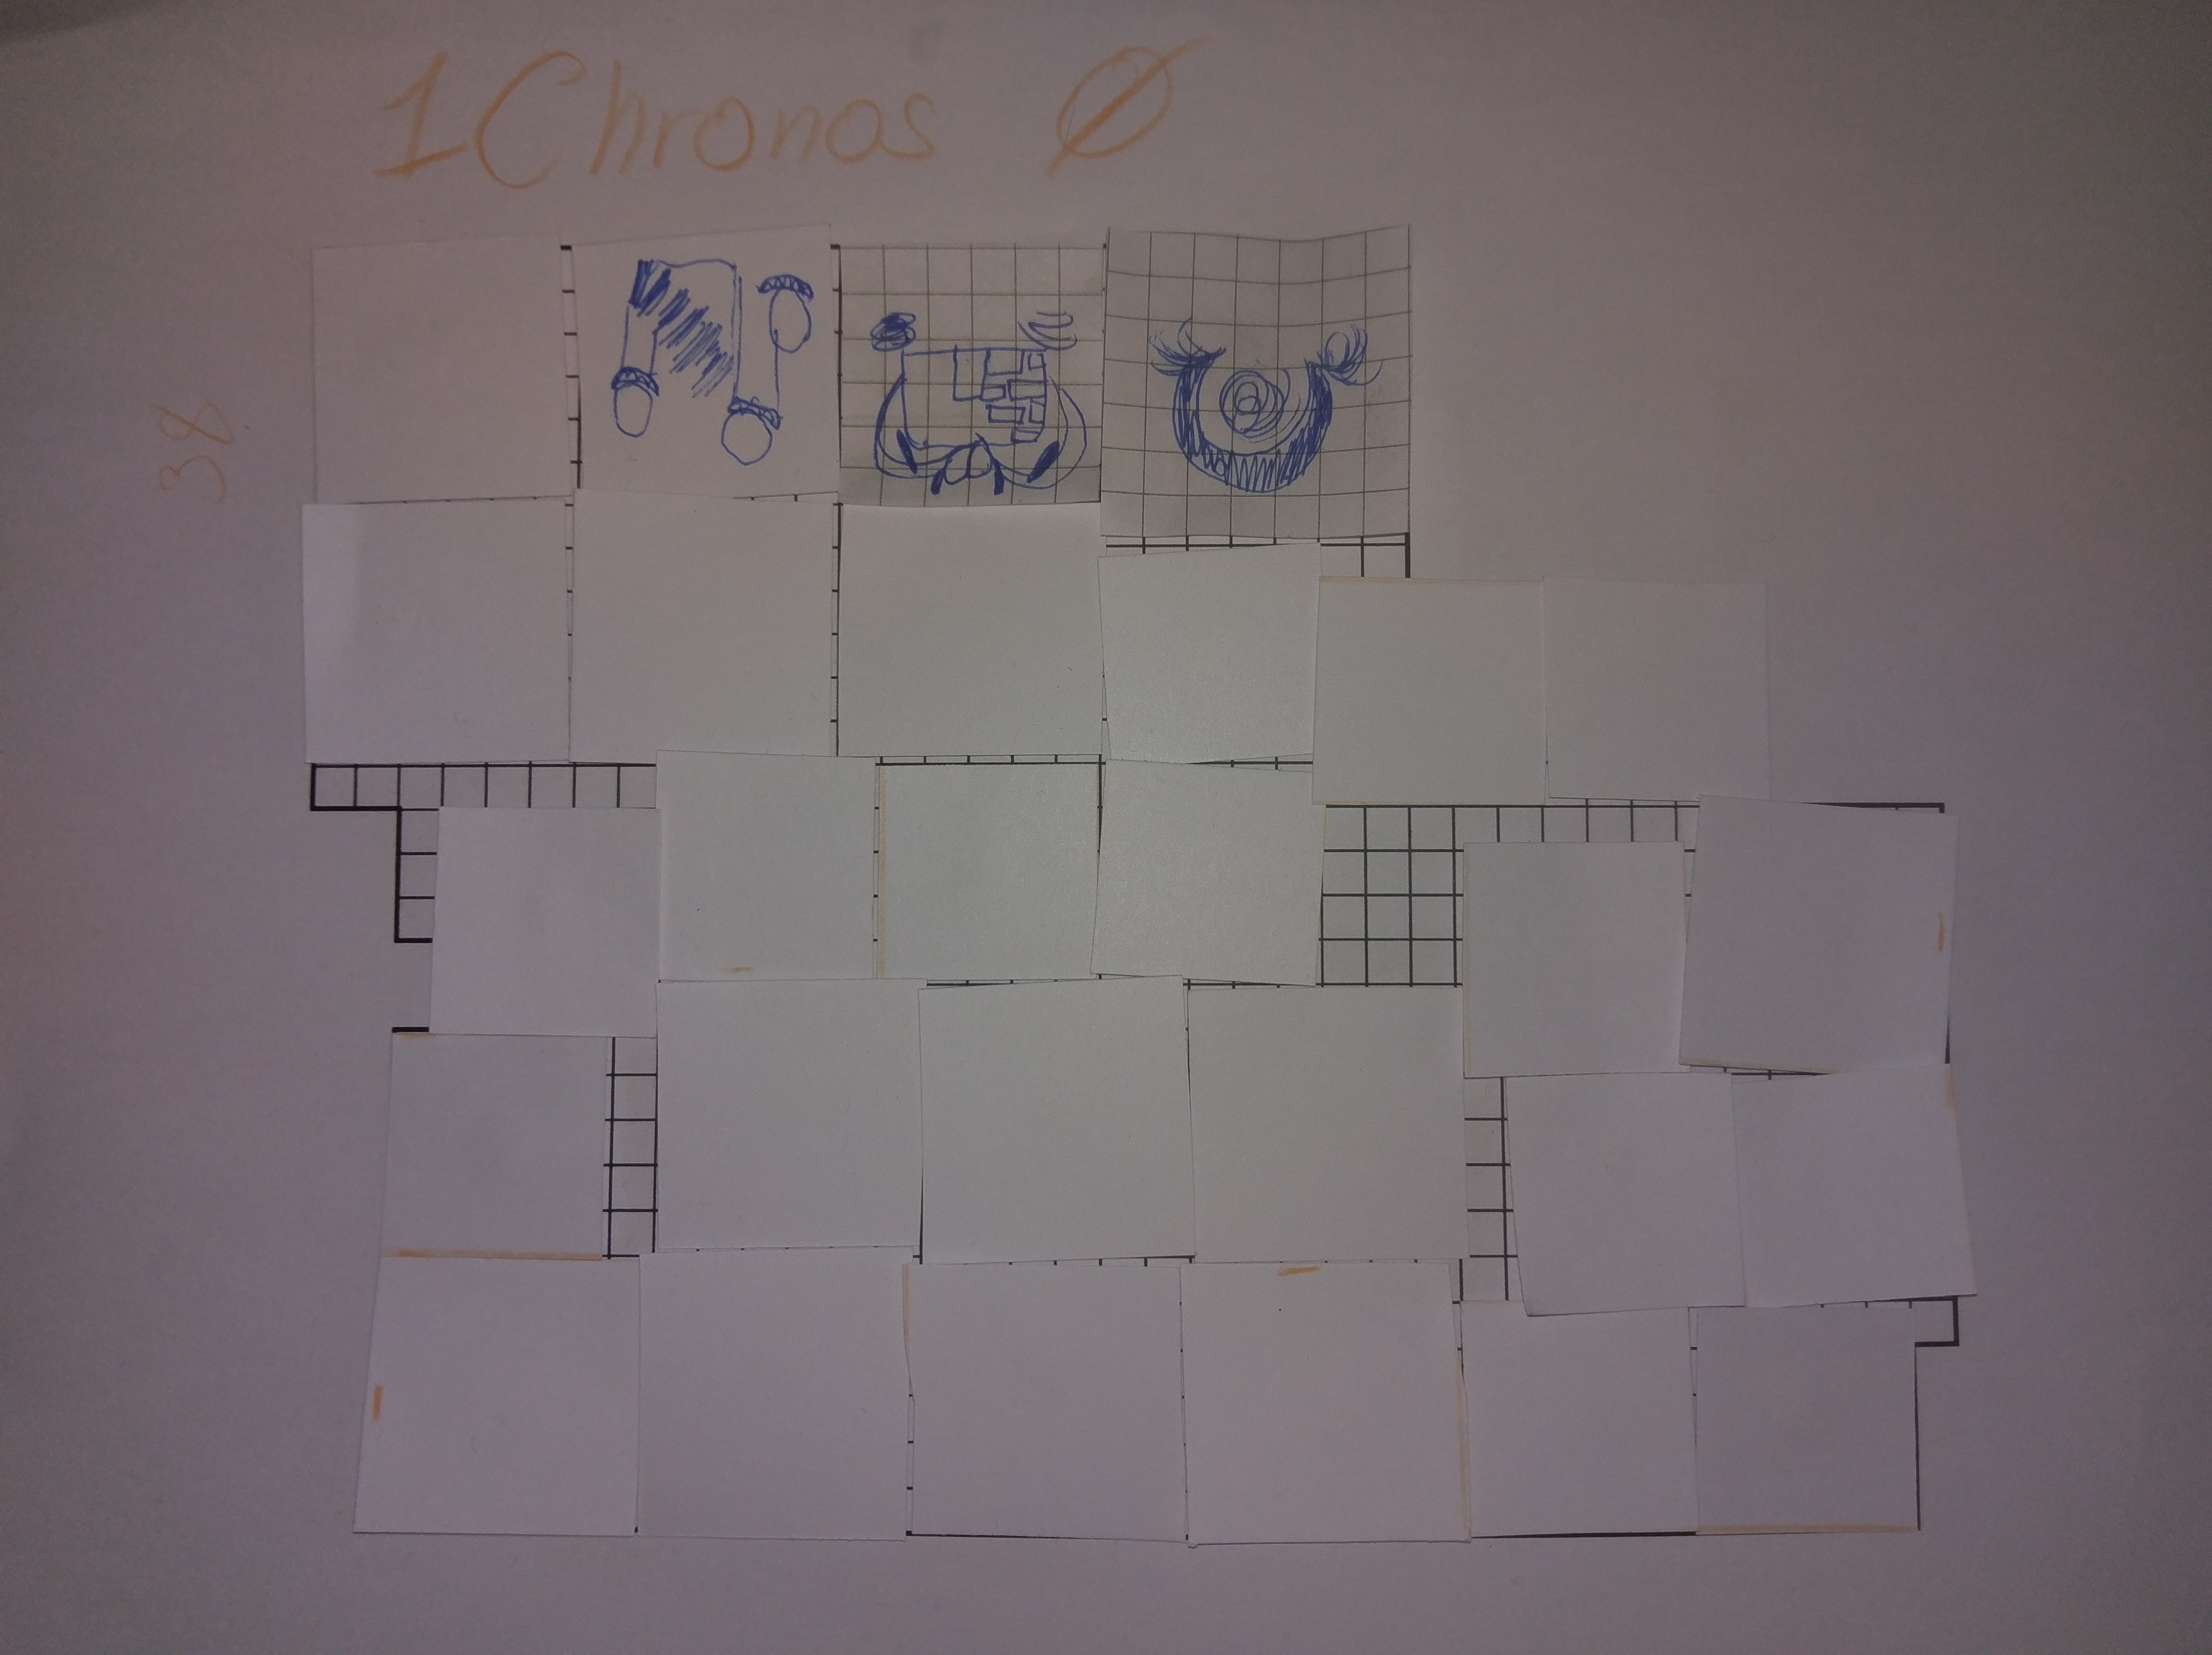 1 Chronos Ø
38